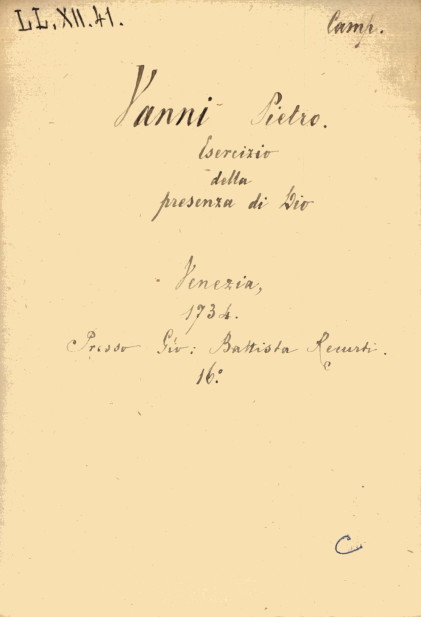 LL.XII.41.
Camp.
Vanni Pietro.
Esercizio
della
presenza di Dio
Venezia,
1734.
Presso Gio: Battista Recurti.
16º
C